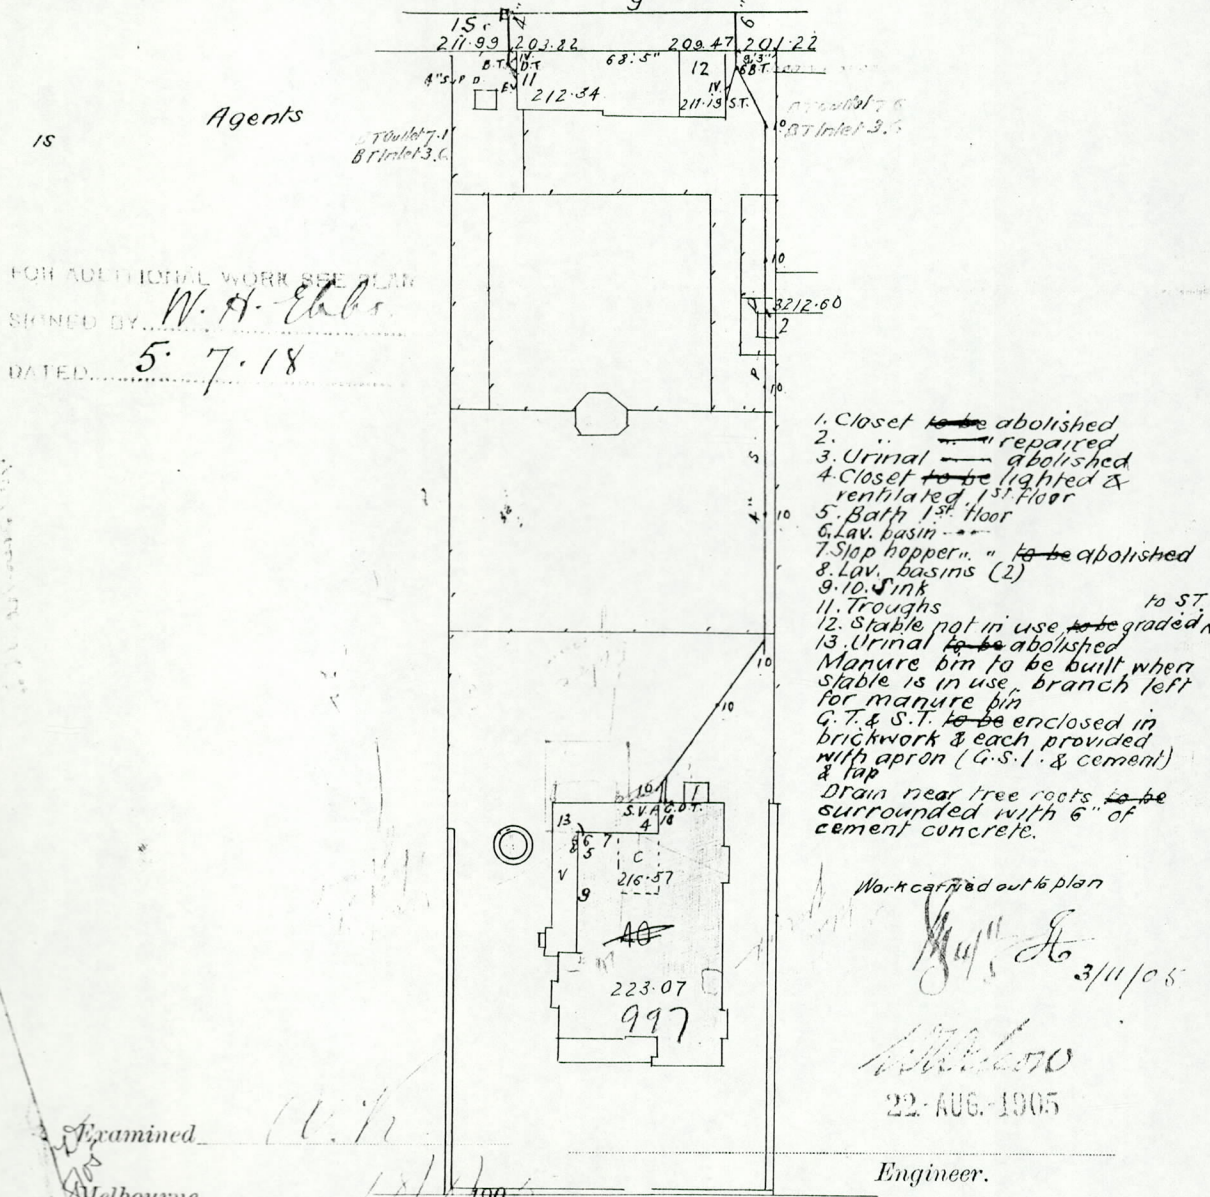 15
211.99 203.82 68'.5" 209.47 201.22
B.T. IV. D.T. 9'3"
4" S.V.P. D. 11 12 6 B.T.
212.34 IV.
211.19 S.T.
Agents
BT Outlet 7.1
BT Inlet 3.6
BT Outlet 7.6
BT Inlet 3.6
15
10
FOR ADDITIONAL WORK SEE PLAN
SIGNED BY W. H. Ebbs
DATED 5. 7. 18
10
3 212.60
2
P
10
S
4" 10
1. Closet to be abolished
2. " " " repaired
3. Urinal abolished
4. Closet to be lighted &
ventilated 1st floor
5. Bath 1st floor
6. Lav. basin
7. Slop hopper " " to be abolished
8. Lav. basins (2)
9.10. Sink
11. Troughs to S.T.
12. Stable not in use, to be graded
13. Urinal to be abolished
Manure bin to be built when
stable is in use, branch left
for manure bin
G.T. & S.T. to be enclosed in
brickwork & each provided
with apron (G.S.I. & cement)
& tap
Drain near tree roots to be
surrounded with 6" of
cement concrete.
10
10
10 1
S.V.P. G.D.T.
13 4 10
8 6 7
5 C
V 216.57
9
40
223.07
997
Work carried out to plan
3/11/05
22 AUG. 1905
Examined
Engineer.
Melbourne
100